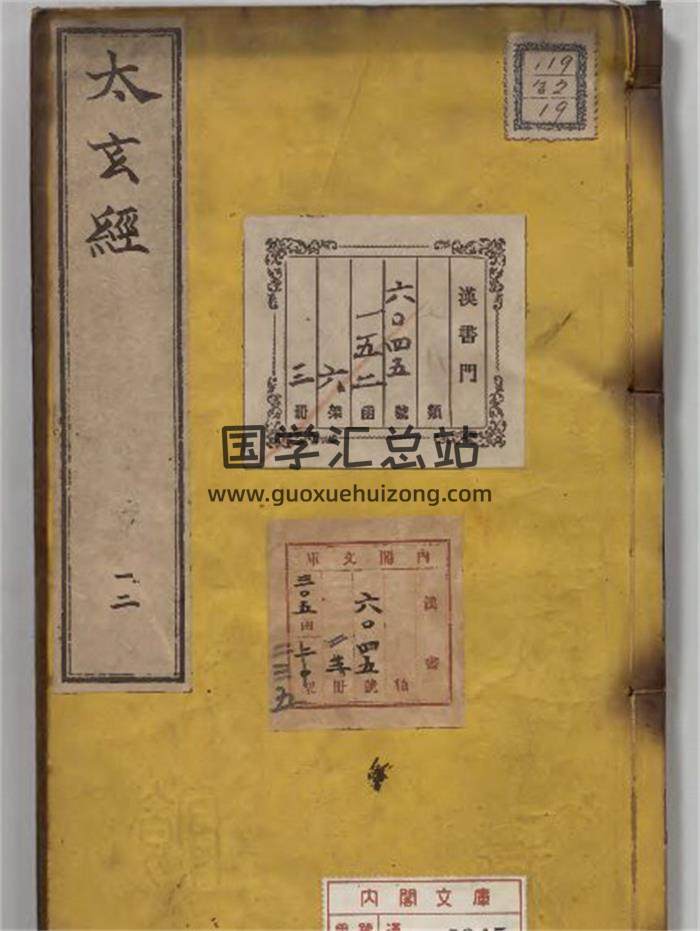 太玄經
一二
119
32
19
漢書門
類
六〇四五號
一五二函
六架
三冊
国学汇总站
www.guoxuehuizong.com
內閣文庫
漢書
六〇四五
三〇五函
二三五
內閣文庫